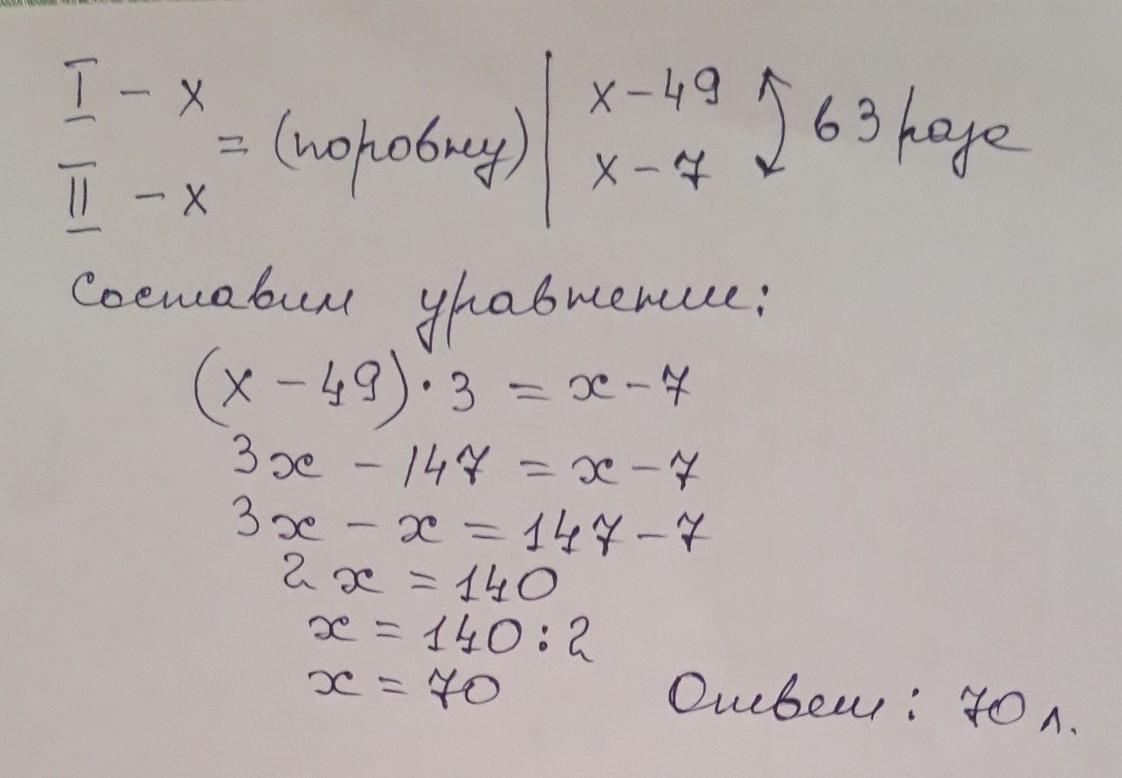 I – x
= (поровну)
II – x
x – 49
x – 7
в 3 раза
Составим уравнение:
(x – 49) · 3 = x – 7
3x – 147 = x – 7
3x – x = 147 – 7
2x = 140
x = 140 : 2
x = 70
Ответ: 70 л.